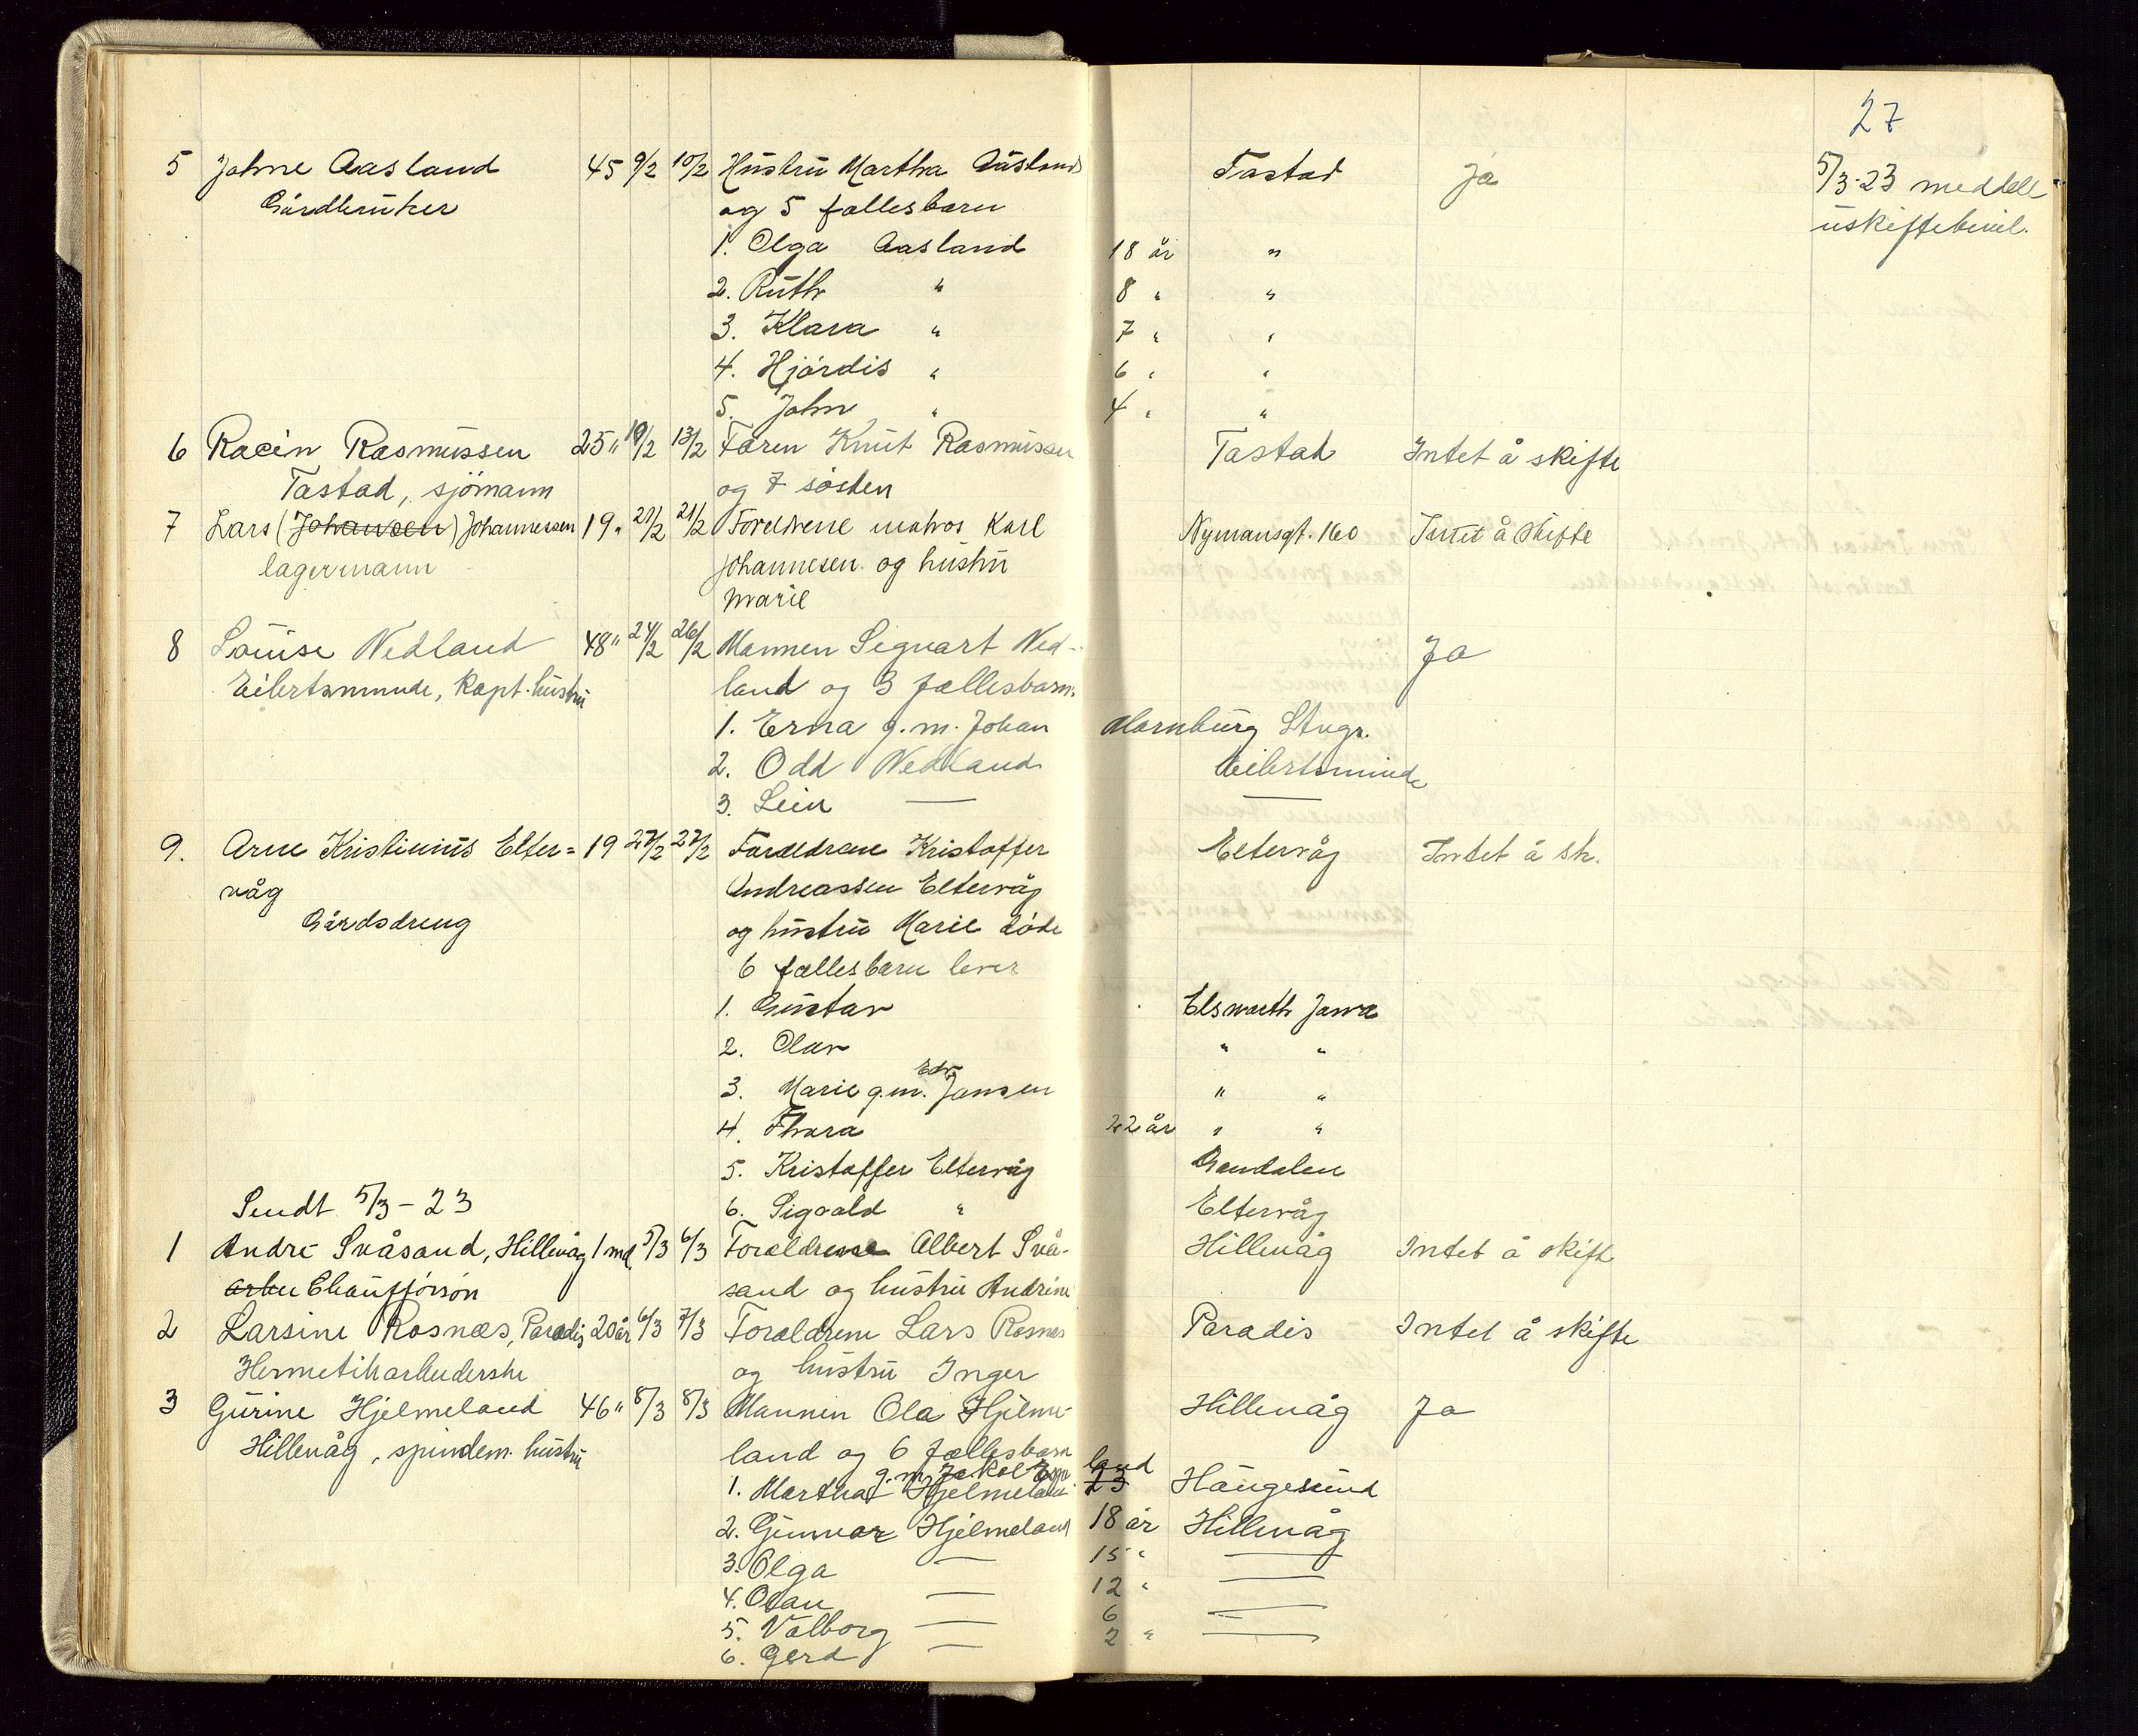 27
5 Johne Aasland 45 9/2 10/2 Hustru Martha Aasland Tastad Ja 5/3-23 meddelt
Gårdbruker og 5 fællesbarn uskiftebevil.
1. Olga Aasland 18 år "
2. Ruth " 8 " "
3. Klara " 7 " "
4. Hjördis " 6 " "
5. John " 4 " "
6 Racin Rasmussen 25 " 10/2 13/2 Faren Knut Rasmussen Tastad Intet å skifte
Tastad, sjömann og 7 sösken
7 Lars (Johansen) Johannessen 19 " 21/2 21/2 Foreldrene matros Karl Nymansgt. 160 Intet å skifte
lagermann Johannesen og hustru
Marie
8 Louise Nedland 48 " 24/2 26/2 Mannen Sigvart Ned- Ja
Eilertsminde, kapt. hustru land og 3 fællesbarn.
1. Erna g.m. Johan Marnburg Stvgr.
2. Odd Nedland Eilertsminde
3. Lein — —
9. Arne Kristinius Elter= 19 27/2 27/2 Forældrene Kristoffer Eltervåg Intet å sk.
våg Andreassen Eltervåg
Gårdsdreng og hustru Marie døde
6 fællesbarn lever
1. Gustav Elsworth Jowa
2. Olav " "
Edv.
3. Marie g.m. Jansen " "
4. Thora 22 år " "
5. Kristoffer Eltervåg Gandalen
Sendt 5/3-23 6. Sigvald " Eltervåg
1 André Svåsand, Hillevåg 1 md 5/3 6/3 Forældrene Albert Svå- Hillevåg Intet å skifte
arbu Chaufförsön sand og hustru Andrine
2 Larsine Rosnæs, Paradis 20 år 6/3 7/3 Forældrene Lars Rosnæs Paradis Intet å skifte
Hermetikarbeiderske og hustru Inger
3 Gurine Hjelmeland 46 " 8/3 8/3 Mannen Ola Hjelme- Hillevåg Ja
Hillevåg, spindem. hustru land og 6 fællesbarn
g.m. Jakob Espe land
1. Martha Hjelmeland 23 Haugesund
2. Gunnar Hjelmeland 18 år Hillevåg
3. Olga — 15 " —
4. Osan — 12 " —
5. Valborg — 6 —
6. Gerd — 2 " —